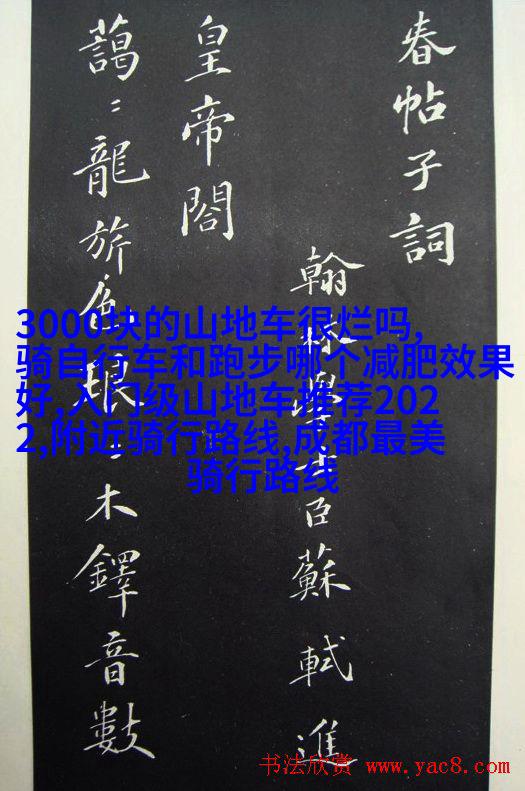 春帖子詞
翰林學士臣蘇軾進
皇帝閣
藹〻龍旂色琅〻木鐸音數
3000块的山地车很烂吗,
骑自行车和跑步哪个减肥效果
好,入门级山地车推荐202
2,附近骑行路线,成都最美
骑行路线
书法欣赏 www.yac8.com